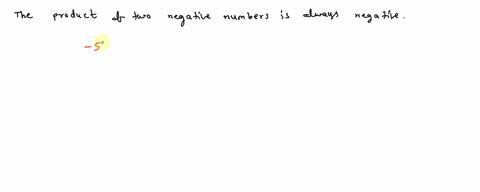 The product of two negative numbers is always negative.
-5